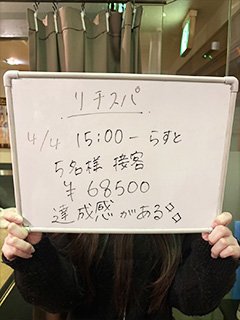 リチスパ
4/4 15:00ーらすと
5名様 接客
¥68500
達成感がある